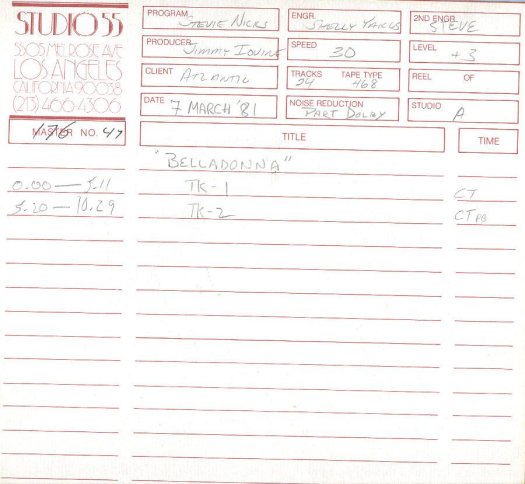 STUDIO 55
5505 MELROSE AVE
LOS ANGELES
CALIFORNIA 90038
(213) 466-4306
PROGRAM STEVIE NICKS
ENGR. SHELLY YAKUS
2ND ENGR. STEVE
PRODUCER Jimmy Iovine
SPEED 30
LEVEL +3
CLIENT ATLANTIC
TRACKS 24 TAPE TYPE 468
REEL OF
DATE 7 MARCH '81
NOISE REDUCTION PART DOLBY
STUDIO A
MASTER NO. 47
TITLE
TIME
"BELLADONNA"
0.00 — 5.11 TK-1 CT
5.20 — 10.29 TK-2 CT PB